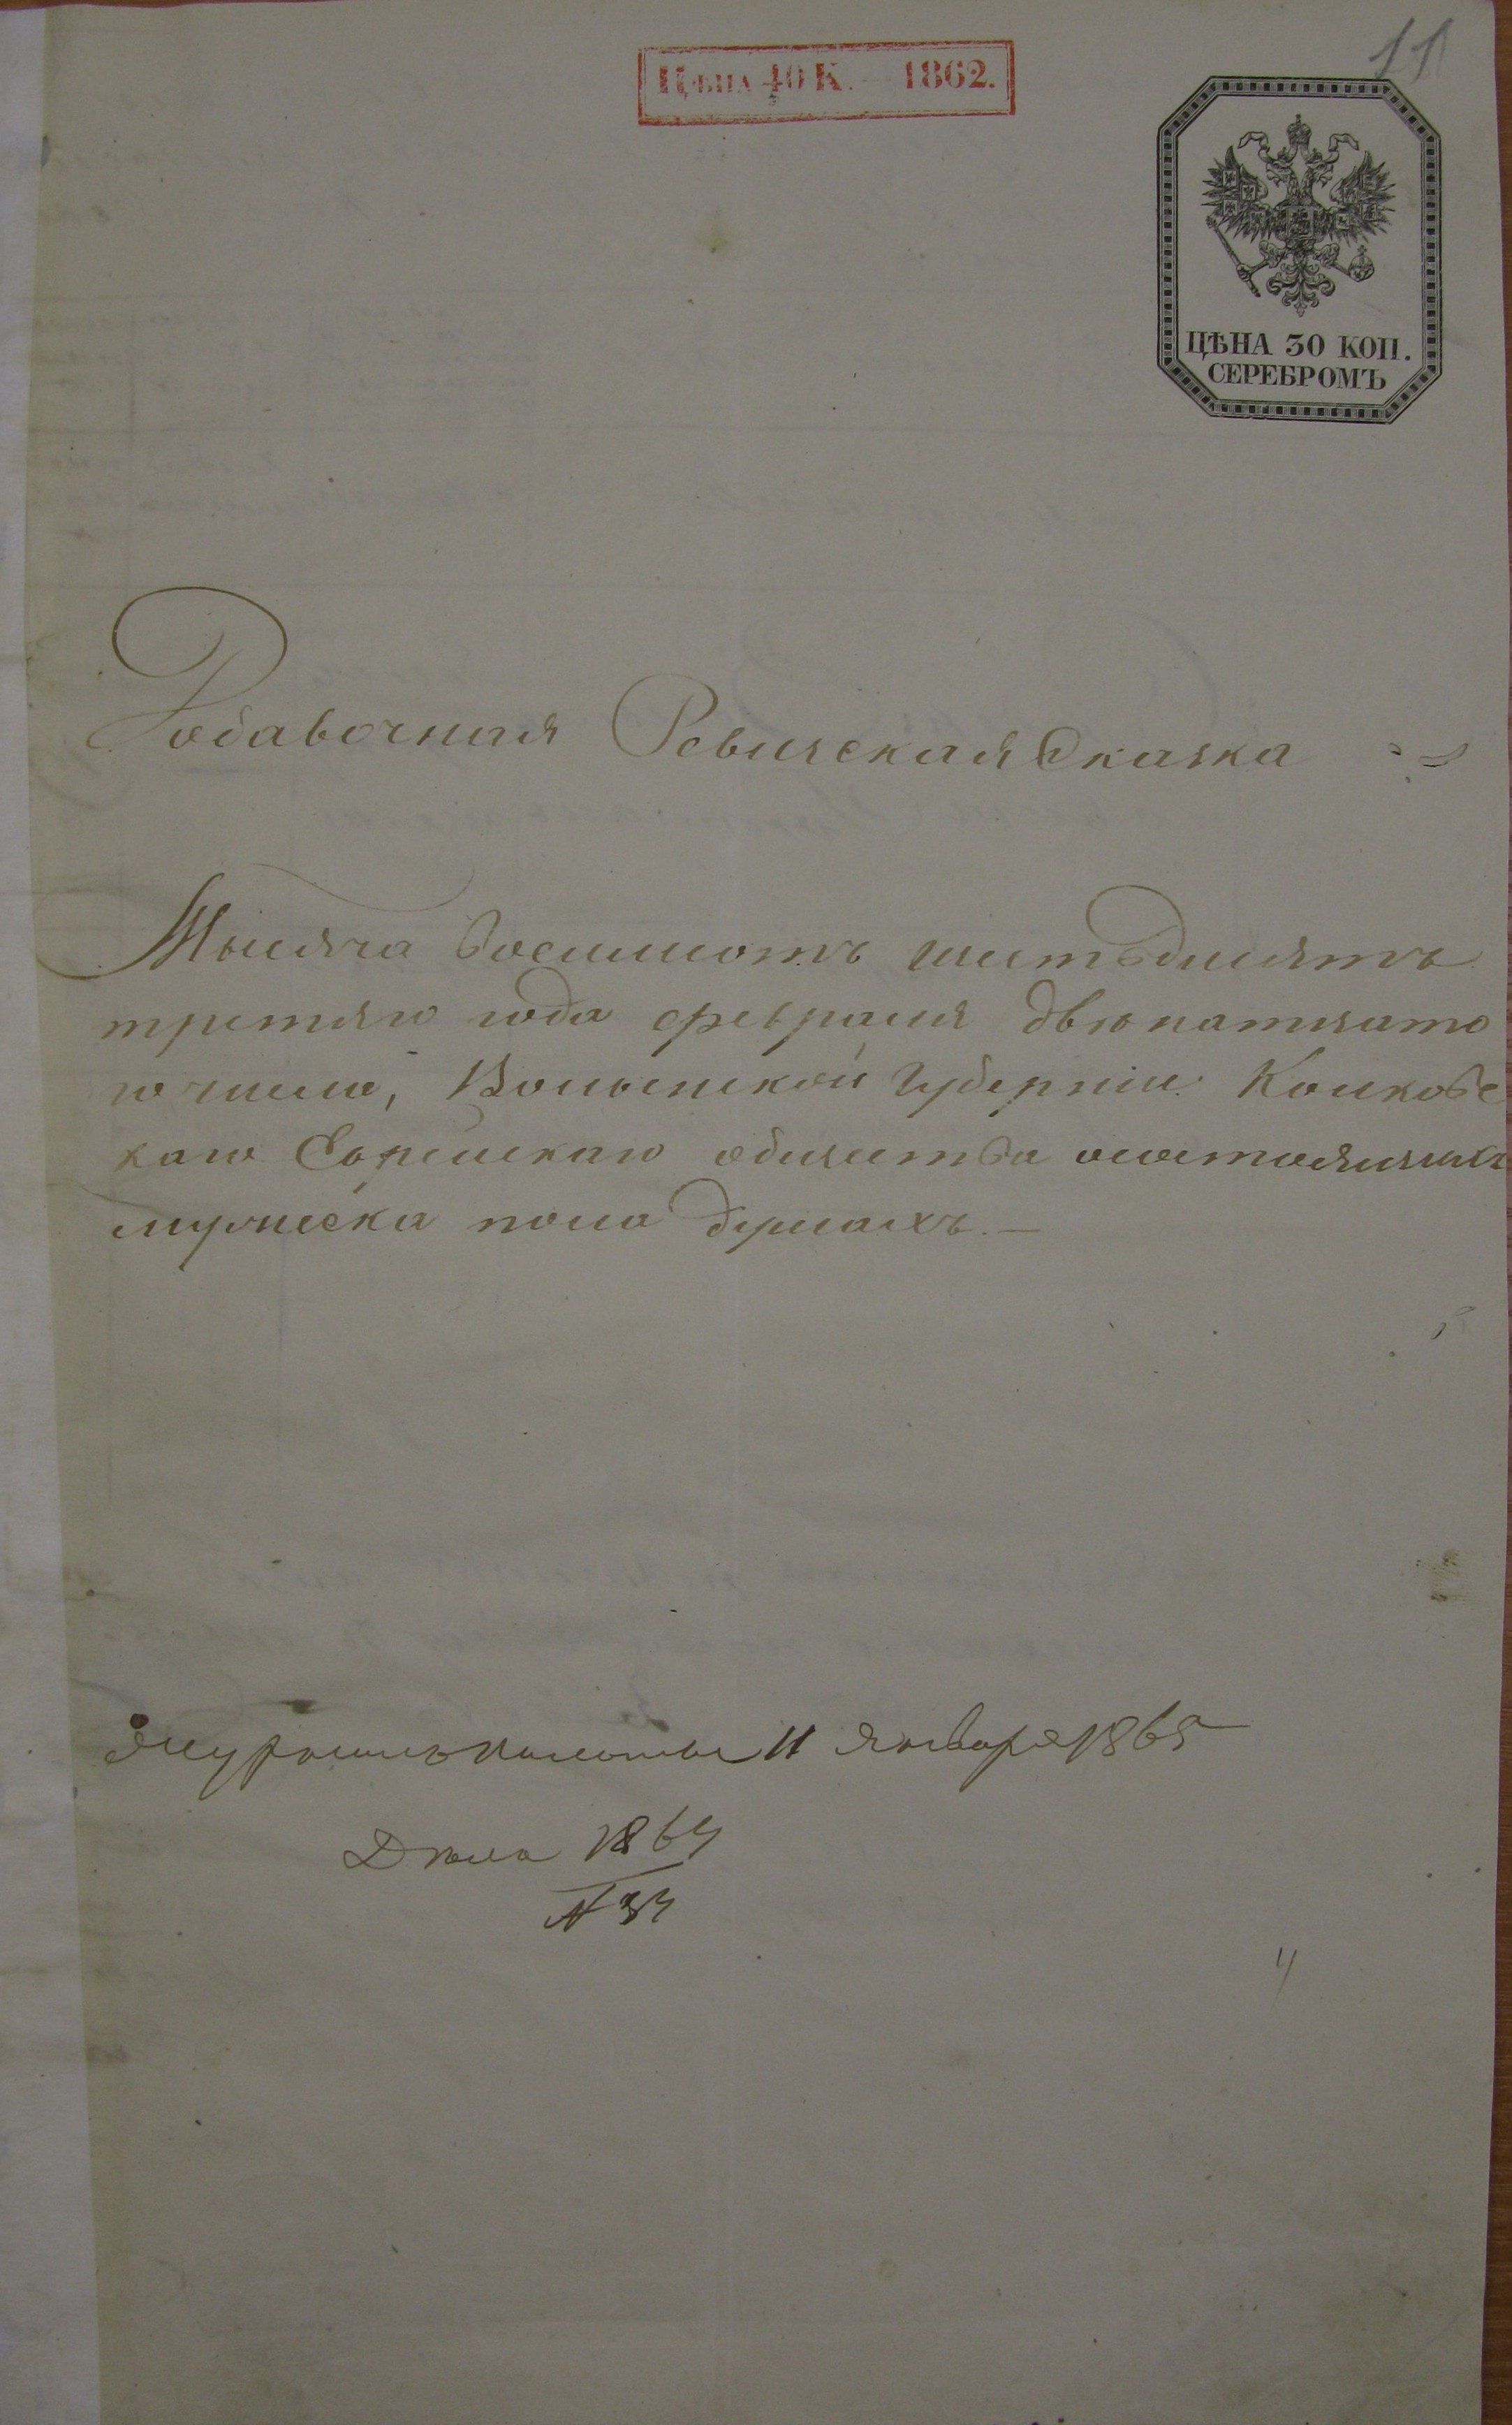 11
Цѣна 40 К. — 1862.
ЦѢНА 30 КОП.
СЕРЕБРОМЪ
Добавочная Ревизская Сказка
Тысяча восемьсотъ шестьдесятъ
третяго года февраля двенатцато
го числа, Волынской Губерніи Колковс
каго Еврейскаго общества о состоящихъ
мужеска пола душахъ. —
палаты 11 Января 1865
Дѣла 1864
№ 34